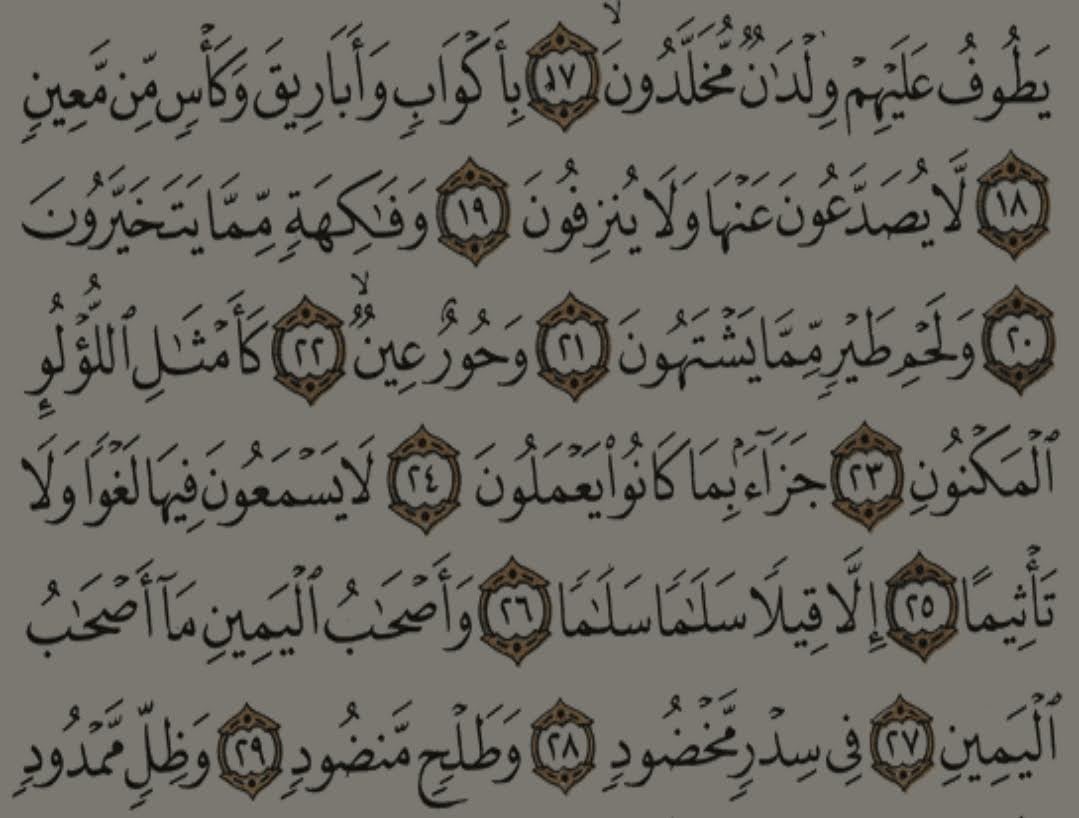 يَطُوفُ عَلَيْهِمْ وِلْدَٰنٌ مُّخَلَّدُونَ ۙ ١٧ بِأَكْوَابٍ وَأَبَارِيقَ وَكَأْسٍ مِّن مَّعِينٍ
١٨ لَّا يُصَدَّعُونَ عَنْهَا وَلَا يُنزِفُونَ ١٩ وَفَٰكِهَةٍ مِّمَّا يَتَخَيَّرُونَ
٢٠ وَلَحْمِ طَيْرٍ مِّمَّا يَشْتَهُونَ ٢١ وَحُورٌ عِينٌ ۙ ٢٢ كَأَمْثَٰلِ ٱللُّؤْلُؤِ
ٱلْمَكْنُونِ ٢٣ جَزَآءًۢ بِمَا كَانُوا۟ يَعْمَلُونَ ٢٤ لَا يَسْمَعُونَ فِيهَا لَغْوًا وَلَا
تَأْثِيمًا ٢٥ إِلَّا قِيلًا سَلَٰمًا سَلَٰمًا ٢٦ وَأَصْحَٰبُ ٱلْيَمِينِ مَآ أَصْحَٰبُ
ٱلْيَمِينِ ٢٧ فِى سِدْرٍ مَّخْضُودٍ ٢٨ وَطَلْحٍ مَّنضُودٍ ٢٩ وَظِلٍّ مَّمْدُودٍ